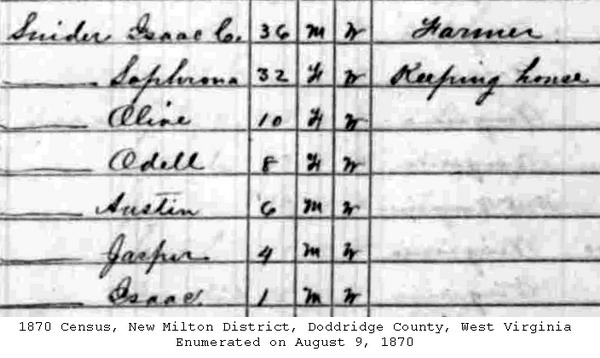 Snider Isaac C. 36 M W Farmer
Sophrona 32 F W Keeping house
Olive 10 F W
Odell 8 F W
Austin 6 M W
Jasper 4 M W
Isaac 1 M W
1870 Census, New Milton District, Doddridge County, West Virginia
Enumerated on August 9, 1870